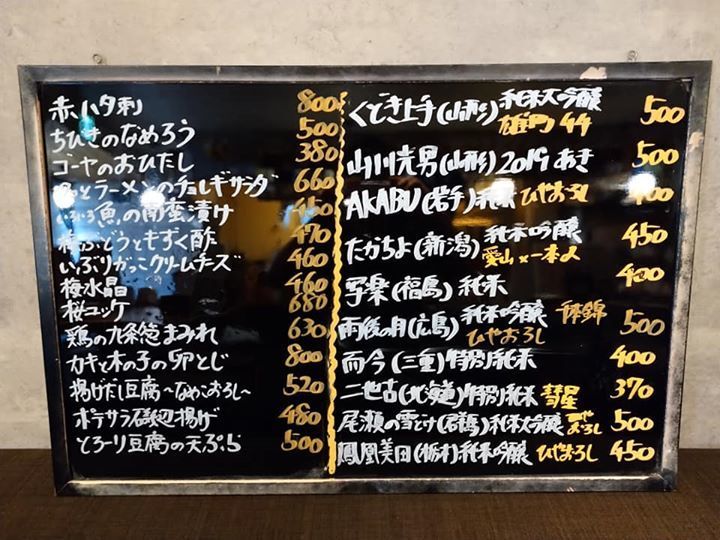 赤ハタ刺 800
ちびきのなめろう 500
ゴーヤのおひたし 380
ラーメンのチョレギサラダ 660
いろいろ魚の南蛮漬け 450
海ぶどうともずく酢 470
いぶりがっこクリームチーズ 460
梅水晶 460
桜ユッケ 680
鶏の九条葱まみれ 630
カキと木の子の卵とじ 800
揚げだし豆腐〜なめこおろし〜 520
ポテサラ磯辺揚げ 480
とろーり豆腐の天ぷら 500
くどき上手(山形) 純米大吟醸 500
雄町44
山川光男(山形) 2019 あき 500
AKABU(岩手) 純米 ひやおろし 400
たかちよ(新潟) 純米吟醸 450
愛山×一本〆
写楽(福島) 純米 400
雨後の月(広島) 純米吟醸 千本錦 500
ひやおろし
而今(三重) 特別純米 400
二世古(北海道) 特別純米 彗星 370
尾瀬の雪どけ(群馬) 純米大吟醸 ひやおろし 500
鳳凰美田(栃木) 純米吟醸 ひやおろし 450